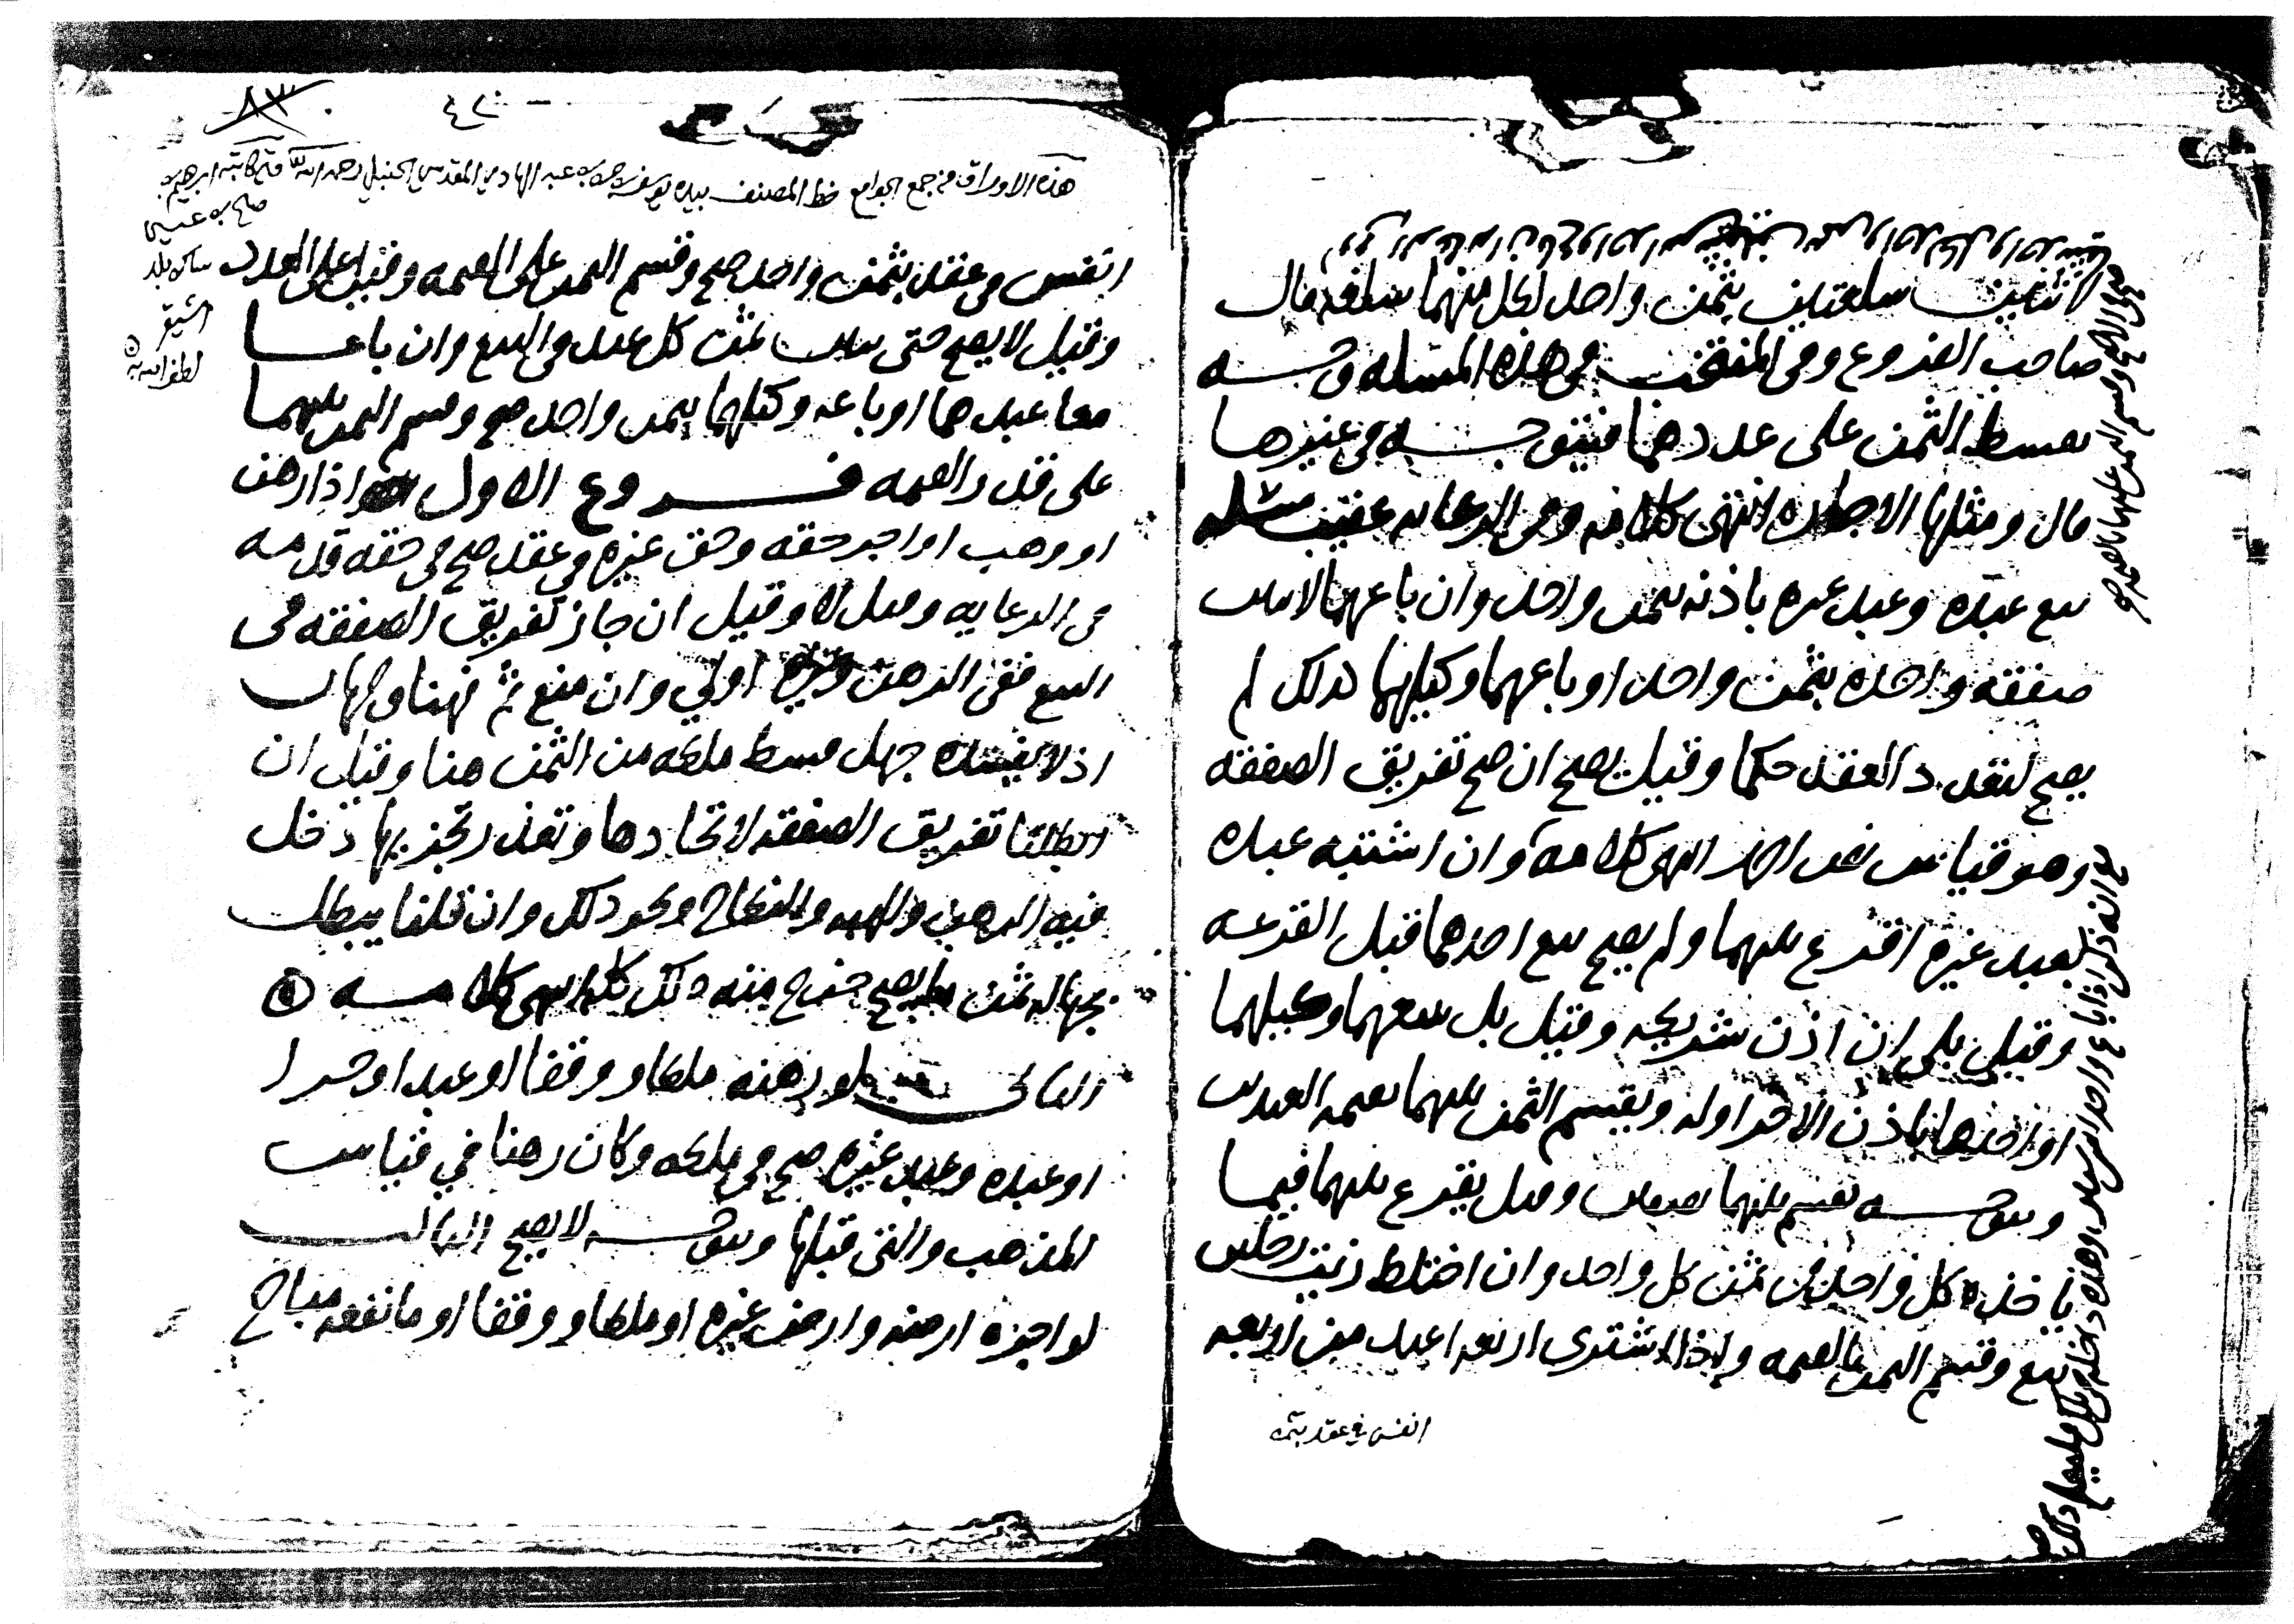 اثنين سلعتين بثمن واحد لكل منهما سلعه قال
صاحب الفروع وفي المنتخب في هذه المسله وجه
بقسط الثمن على عددهما فيتوجه في غيرها
قال ومثلها الاجاره انتهى كلامه وفي الرعايه عقيب مسله
بيع عبده وعبد غيره باذنه بثمن واحد وان باعهما لاثنين
صفقه واحده بثمن واحد او باعهما وكيلهما كذلك لم
يصح لتعدد العقد حكما وقيل يصح ان صح تفريق الصفقه
وهو قياس نص احمد انتهى كلامه وان اشتبه عبده
بعبد غيره اقرع بينهما ولم يصح بيع احدهما قبل القرعه
وقيل بلى ان اذن شريكه وقيل بل يبيعهما وكيلهما
او احدهما باذن الاخر اوله ويقسم الثمن بينهما بقيمه العبدين
ويتوجه يقسم بينهما نصفين وقيل يقرع بينهما فيما
ياخذه كل واحد من ثمن كل واحد وان اختلط زيت رجلين
بيع وقسم الثمن بالقيمه واذا اشترى اربعه اعبد من اربعه
انفس في عقد بثمن
هذه الاوراق من جمع الجوامع خط المصنف بيده يوسف بن حسن بن عبد الهادي المقدسي الحنبلي رحمه الله قاله كاتبه ابرهيم بن
صالح بن عيسى
ساكن بلد
اشيقر
لطف الله به
انفس في عقد بثمن واحد صح وقسم الثمن على القيمه وقيل على العدد
وقيل لا يصح حتى يبين ثمن كل عبد في البيع وان باعا
معا عبدهما او باعه وكيلهما بثمن واحد صح وقسم الثمن بينهما
على قدر القيمه فروع الاول اذا رهن
او وهب او اجر حقه وحق غيره في عقد صح في حقه قدمه
في الرعايه وقيل لا وقيل ان جاز تفريق الصفقه في
البيع ففي الرهن وغيره اولى وان منع ثم فهنا وجهان
اذ لا يفسده جهل قسط ملكه من الثمن هنا وقيل ان
ابطلنا تفريق الصفقه لاتحادها وتعذر تجزيها دخل
فيه الرهن والهبه والنكاح ونحو ذلك وان قلنا يبطل
بجهاله ثمن ما يصح خرج منه ذلك كله انتهى كلامه
الثاني لو رهنه ملكا ووقفا او عبدا وحرا
او عبده وعبد غيره صح في ملكه وكان رهنا في قياس
المذهب والتي قبلها ويتوجه لا يصح الثالث
لو اجره ارضه وارض غيره او ملكا ووقفا او ما نفعه مباح